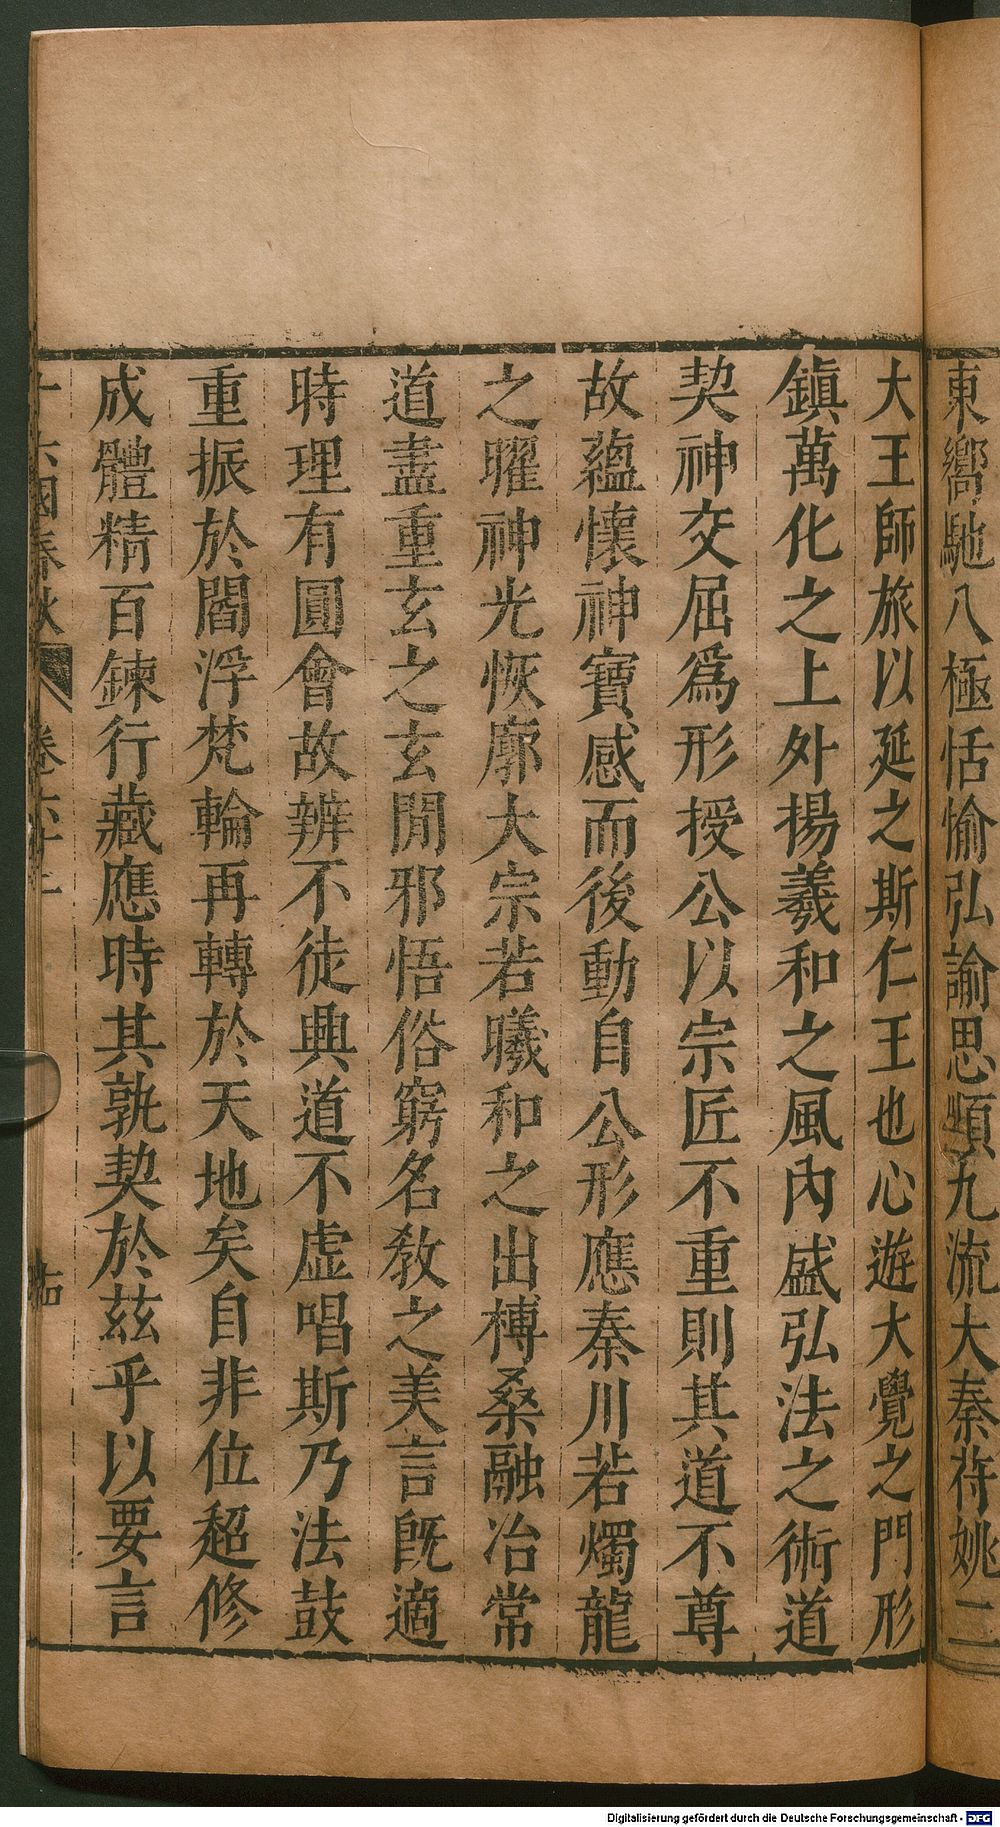 東嚮馳八極恬愉弘諭思順九流大秦苻姚二
大王師旅以延之斯仁王也心遊大覺之門形
鎭萬化之上外揚羲和之風內盛弘法之術道
契神交屈爲形授公以宗匠不重則其道不尊
故蘊懷神寶感而後動自公形應秦川若燭龍
之曜神光恢廓大宗若曦和之出榑桑融冶常
道盡重玄之玄閒邪悟俗窮名敎之美言旣適
時理有圓會故辨不徒興道不虛唱斯乃法鼓
重振於閻浮梵輪再轉於天地矣自非位超修
成體精百鍊行藏應時其孰契於茲乎以要言
十六國春秋 卷六十二
Digitalisierung gefördert durch die Deutsche Forschungsgemeinschaft - DFG